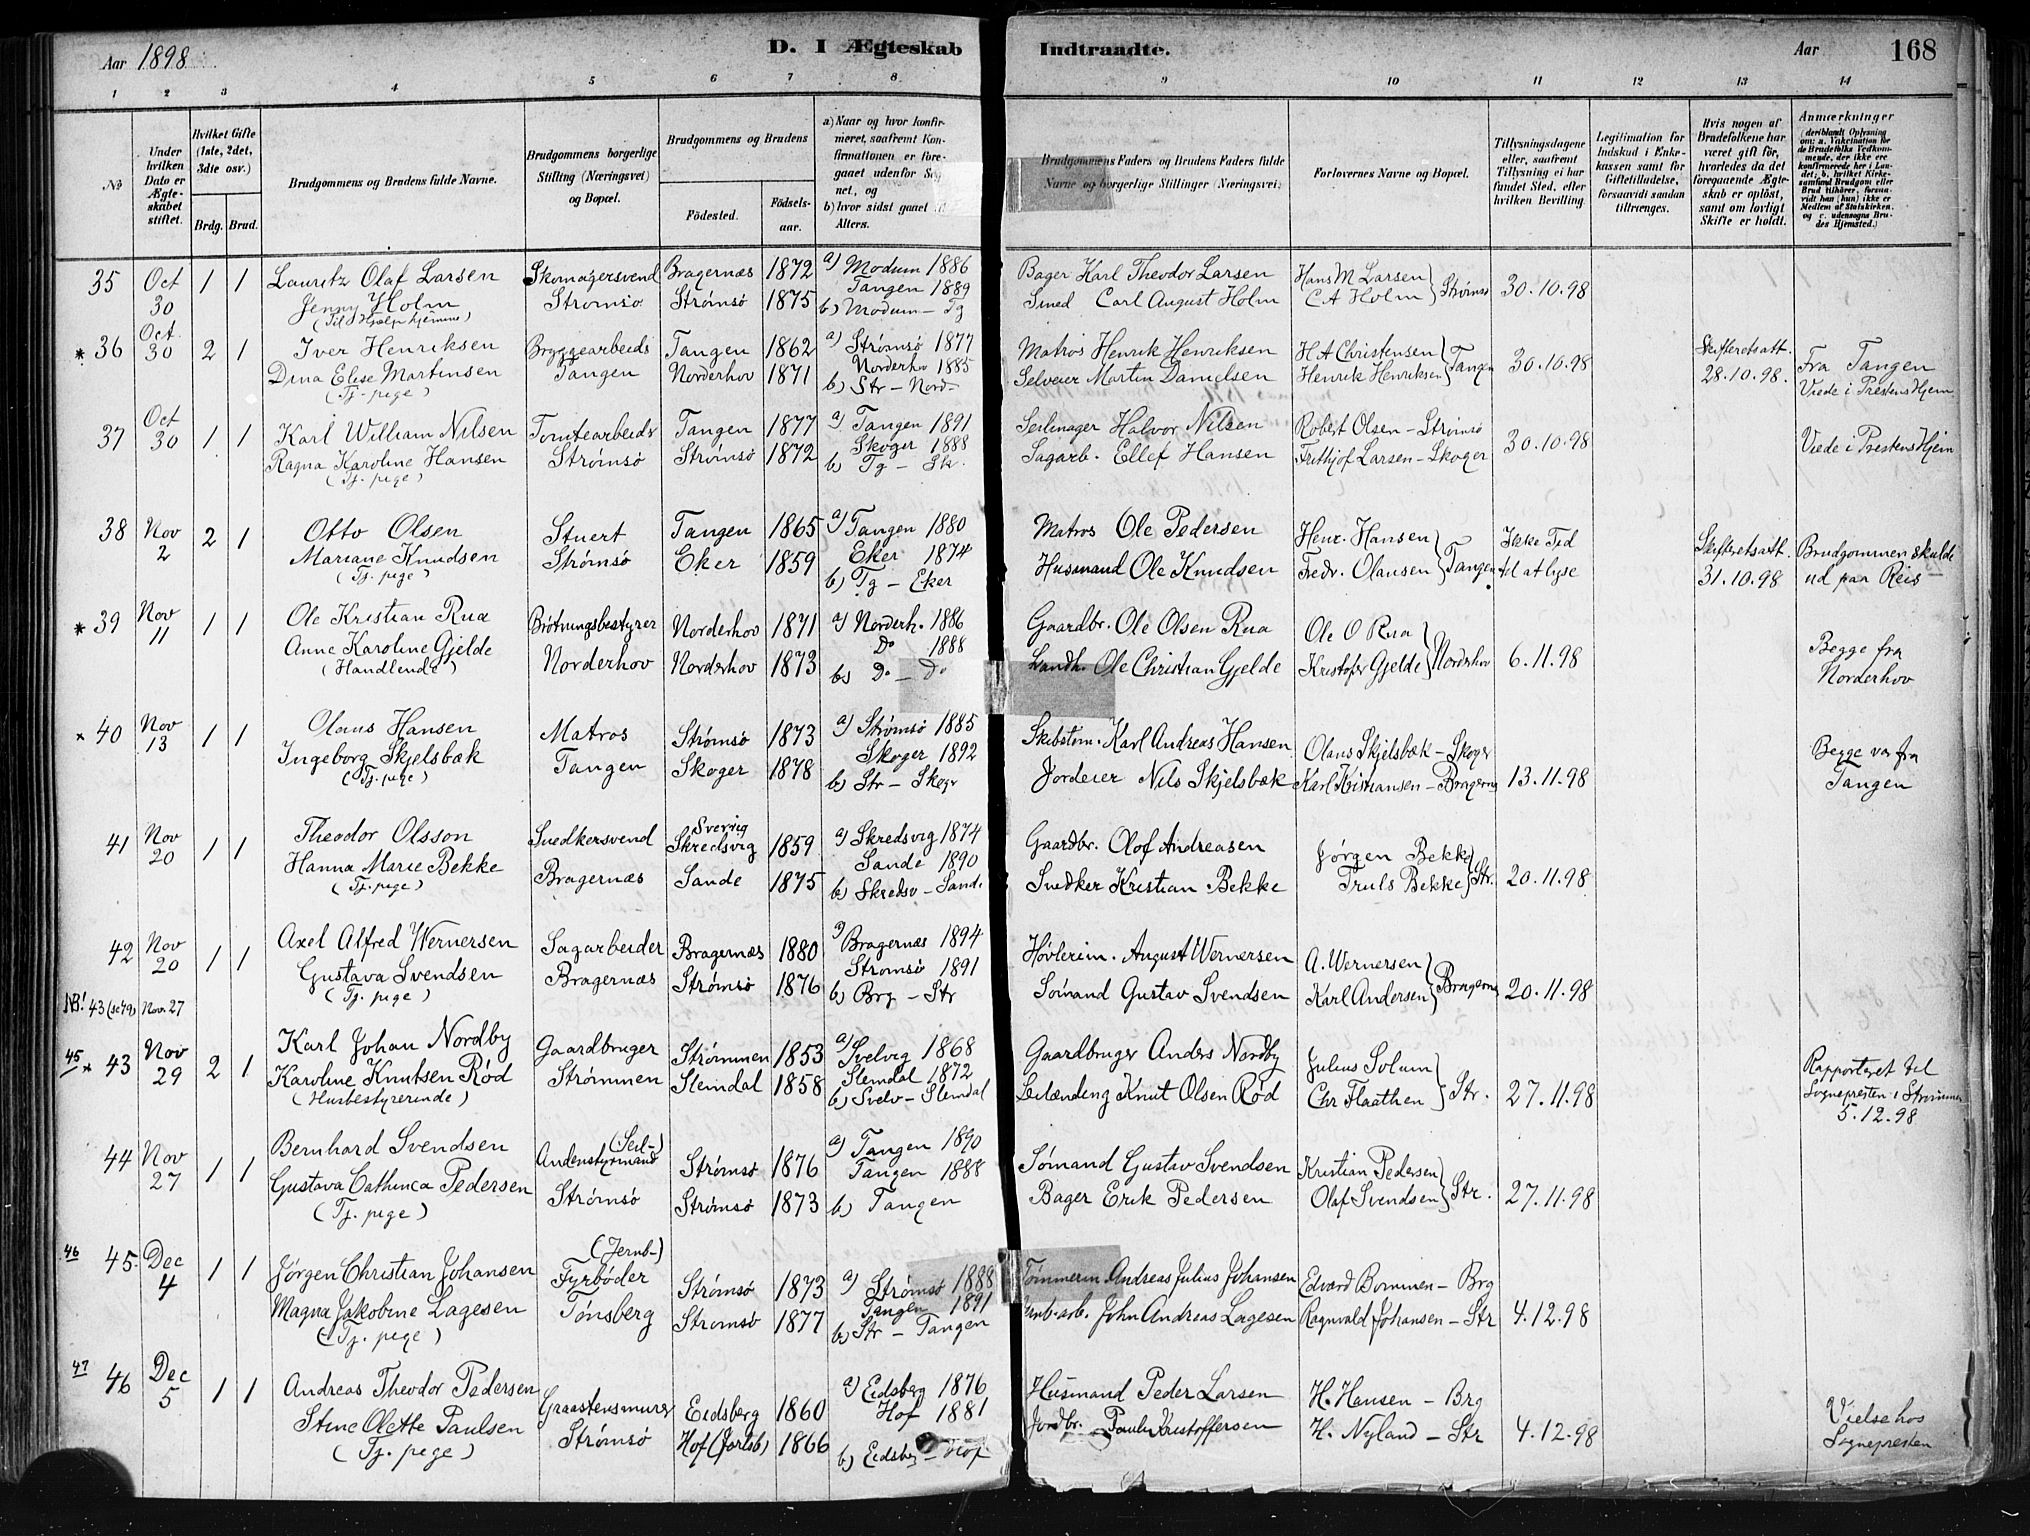 Aar 1898 D. I Ægteskab Indtraadte. Aar 168
1 2 3 4 5 6 7 8 9 10 11 12 13 14
No
Under hvilken Dato er Ægteskabet stiftet.
Hvilket Gifte (1ste, 2det, 3die osv.)
Brdg. Brud.
Brudgommens og Brudens fulde Navne.
Brudgommens borgerlige Stilling (Næringsvei) og Bopæl.
Brudgommens og Brudens
Fødested. Fødselsaar.
a) Naar og hvor konfirmeret, saafremt Konfirmationen er foregaaet udenfor Sognet, og
b) hvor sidst gaaet til Alters.
Brudgommens Faders og Brudens Faders fulde Navne og borgerlige Stillinger (Næringsvei)
Forlovernes Navne og Bopæl.
Tillysningsdagene eller, saafremt Tillysning ei har fundet Sted, efter hvilken Bevilling.
Legitimation for Indskud i Enkekassen samt for Giftetilladelse, forsaavidt saadan tiltrænges.
Hvis nogen af Brudefolkene har været gift før, hvorledes da det foregaaende Ægteskab er opløst, samt om lovligt Skifte er holdt.
Anmærkninger (deriblandt Oplysning om: a. Vakcination for de Brudefolks Vedkommende, der ikke ere konfirmerede her i Landet; b. hvilket Kirkesamfund Brudgom eller Brud tilhører, forsaavidt han (hun) ikke er Medlem af Statskirken. og c. udensogns Brudes Hjemsted.)
35 Oct 30 1 1 Lauritz Olaf Larsen Skomagersvend Bragernæs 1872 a) Modum 1886 Bager Karl Theodor Larsen Hans M Larsen Strømsø 30.10.98
Jenny Holm Strømsø Strømsø 1875 Tangen 1889 Smed Carl August Holm C A Holm
(Til Hjælp hjemme) b) Modum – Tg
* 36 Oct. 30 2 1 Iver Henriksen Bryggearbeids Tangen 1862 a) Strømsø 1877 Matros Henrik Henriksen H A Christensen Tangen 30.10.98 Skifteretsatt. 28.10.98. Fra Tangen
Dina Elise Martinsen Tangen Norderhov 1871 Norderhv 1885 Selveier Martin Danielsen Henrik Henriksen Viede i Prestens Hjem
(Tj. pege) b) Str – Nord-
37 Oct 30 1 1 Karl William Nilsen Tomtearbeids Tangen 1877 a) Tangen 1891 Seilmager Halvor Nilsen Robert Olsen – Strømsø 30.10.98 Viede i Prestens Hjem
Ragna Karoline Hansen Strømsø Strømsø 1872 Skoger 1888 Sagarb. Ellef Hansen Frithjof Larsen – Skoger
(Tj. pege) b) Tg – Sk.
38 Nov 2 2 1 Otto Olsen Stuert Tangen 1865 a) Tangen 1880 Matros Ole Pedersen Henr. Hansen Tangen Ikke Tid til at lyse Skifteretsatt. 31.10.98 Brudgommen skulde ud paa Reis
Mariane Knudsen Strømsø Eker 1859 Eker 1874 Husmand Ole Knudsen Fredr. Olausen
(Tj. pege) b) Tg – Eker
* 39 Nov 11 1 1 Ole Kristian Rua Brøtningsbestyrer Norderhov 1871 a) Norderh. 1886 Gaardbr. Ole Olsen Rua Ole O Rua Norderhov 6.11.98 Begge fra Norderhov
Anne Karoline Gjelde Norderhov Norderhov 1873 Do 1888 Landh. Ole Christian Gjelde Kristofer Gjelde
(Handlende) b) Do – Do
× 40 Nov 13 1 1 Olaus Hansen Matros Strømsø 1873 a) Strømsø 1885 Skibstøm. Karl Andreas Hansen Olaus Skjelsbæk – Skoger 13.11.98 Begge var fra Tangen
Ingeborg Skjelsbæk Tangen Skoger 1878 Skoger 1892 Jordeier Nils Skjelsbæk Karl Kristiansen – Bragernæs
(Tj. pege) b) Str – Skogr
41 Nov 20 1 1 Theodor Olsson Snedkersvend Sverrig Skredsvig 1859 a) Skredsvig 1874 Gaardbr. Olof Andreasen Jørgen Bekke Str. 20.11.98
Hanna Marie Bekke Bragernæs Sande 1875 Sande 1890 Snedker Kristian Bekke Truls Bekke
(Tj. pege) b) Skredsv – Sande
42 Nov 20 1 1 Axel Alfred Wernersen Sagarbeider Bragernæs 1880 a) Bragernæs 1894 Høvlerim. August Wernersen A. Wernersen Bragernæs 20.11.98
Gustava Svendsen Bragernæs Strømsø 1876 Strømsø 1891 Sømand Gustav Svendsen Karl Andersen
(Tj. pege) b) Brg – Str
NB! 43 (se 49) Nov. 27
45 × 43 Nov 29 2 1 Karl Johan Nordby Gaardbruger Strømmen 1853 a) Svelvig 1868 Gaardbruger Anders Nordby Julius Solum Str. 27.11.98 Rapporteret til Sognepresten i Strømmen 5.12.98
Karoline Knutsen Rød Strømmen Slemdal 1858 Slemdal 1872 Leilænding Knut Olsen Rød Chr Flaathen
(Husbestyrerinde) b) Svelv – Slemdal
44 Nov 27 1 1 Bernhard Svendsen (Seil-) Andenstyrmand Strømsø 1876 a) Tangen 1890 Sømand Gustav Svendsen Kristian Pedersen Str. 27.11.98
Gustava Cathinca Pedersen Strømsø Strømsø 1873 Tangen 1888 Bager Erik Pedersen Olaf Svendsen
(Tj. pege) b) Tangen
46 45. Dec 4 1 1 Jørgen Christian Johansen (Jernb-) Fyrbøder Strømsø 1873 a) Strømsø 1888 Tømmerm Andreas Julius Johansen Edvard Bommen – Brg 4.12.98
Magna Jakobine Lagesen Tønsberg Strømsø 1877 Tangen 1891 Jernb.arb. John Andreas Lagesen Ragnvald Johansen – Str
(Tj. pege) b) Str – Tangen
47 46 Dec 5 1 1 Andreas Theodor Pedersen Graastensmurer Eidsberg 1860 a) Eidsberg 1876 Husmand Peder Larsen H. Hansen – Brg 4.12.98 Vielse hos Sognepresten
Stine Olette Paulsen Strømsø Hof (Jarlsb) 1866 Hof 1881 Jordbr. Paul Kristoffersen H. Nyland – Str
(Tj. pege) b) Eidsberg – Hof